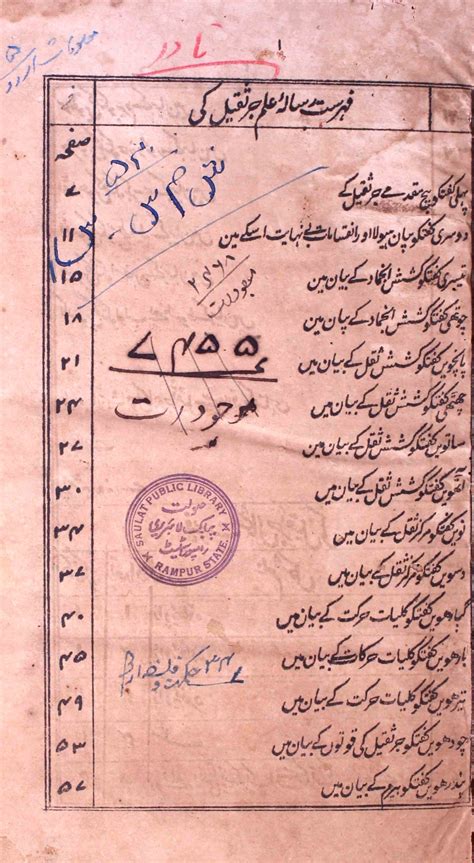 نادر
۱
فہرست رسالۂ علم جر ثقیل کی
صفحہ
پہلی گفتگو بیچ مقدمے جر ثقیل کے ۷
دوسری گفتگو بیان ہیولا اور انقسامات بے نہایت اسکے مین ۱۱
تیسری گفتگو کشش انجماد کے بیان مین ۱۵
چوتھی گفتگو کشش انجماد کے بیان مین ۱۸
پانچویں گفتگو کشش ثقل کے بیان میں ۲۱
چھٹھی گفتگو کشش ثقل کے بیان میں ۲۴
ساتویں گفتگو کشش ثقل کے بیان میں ۲۷
آٹھویں گفتگو کشش ثقل کے بیان میں ۳۰
نویں گفتگو مرکز ثقل کے بیان میں ۳۴
دسویں گفتگو مرکز ثقل کے بیان میں ۳۷
گیارھویں گفتگو کلیات حرکت کے بیان میں ۴۰
بارھویں گفتگو کلیات حرکات کے بیان میں ۴۵
تیرھویں گفتگو کلیات حرکت کے بیان میں ۴۹
چودھویں گفتگو جر ثقیل کی قوتوں کے بیان میں ۵۳
پندرھویں گفتگو بیرم کے بیان میں ۵۷
۲۴۶۸
۷۴۵۵
موجودات
SAULAT PUBLIC LIBRARY
صولت
پبلک لائبریری
رامپور اسٹیٹ
RAMPUR STATE.